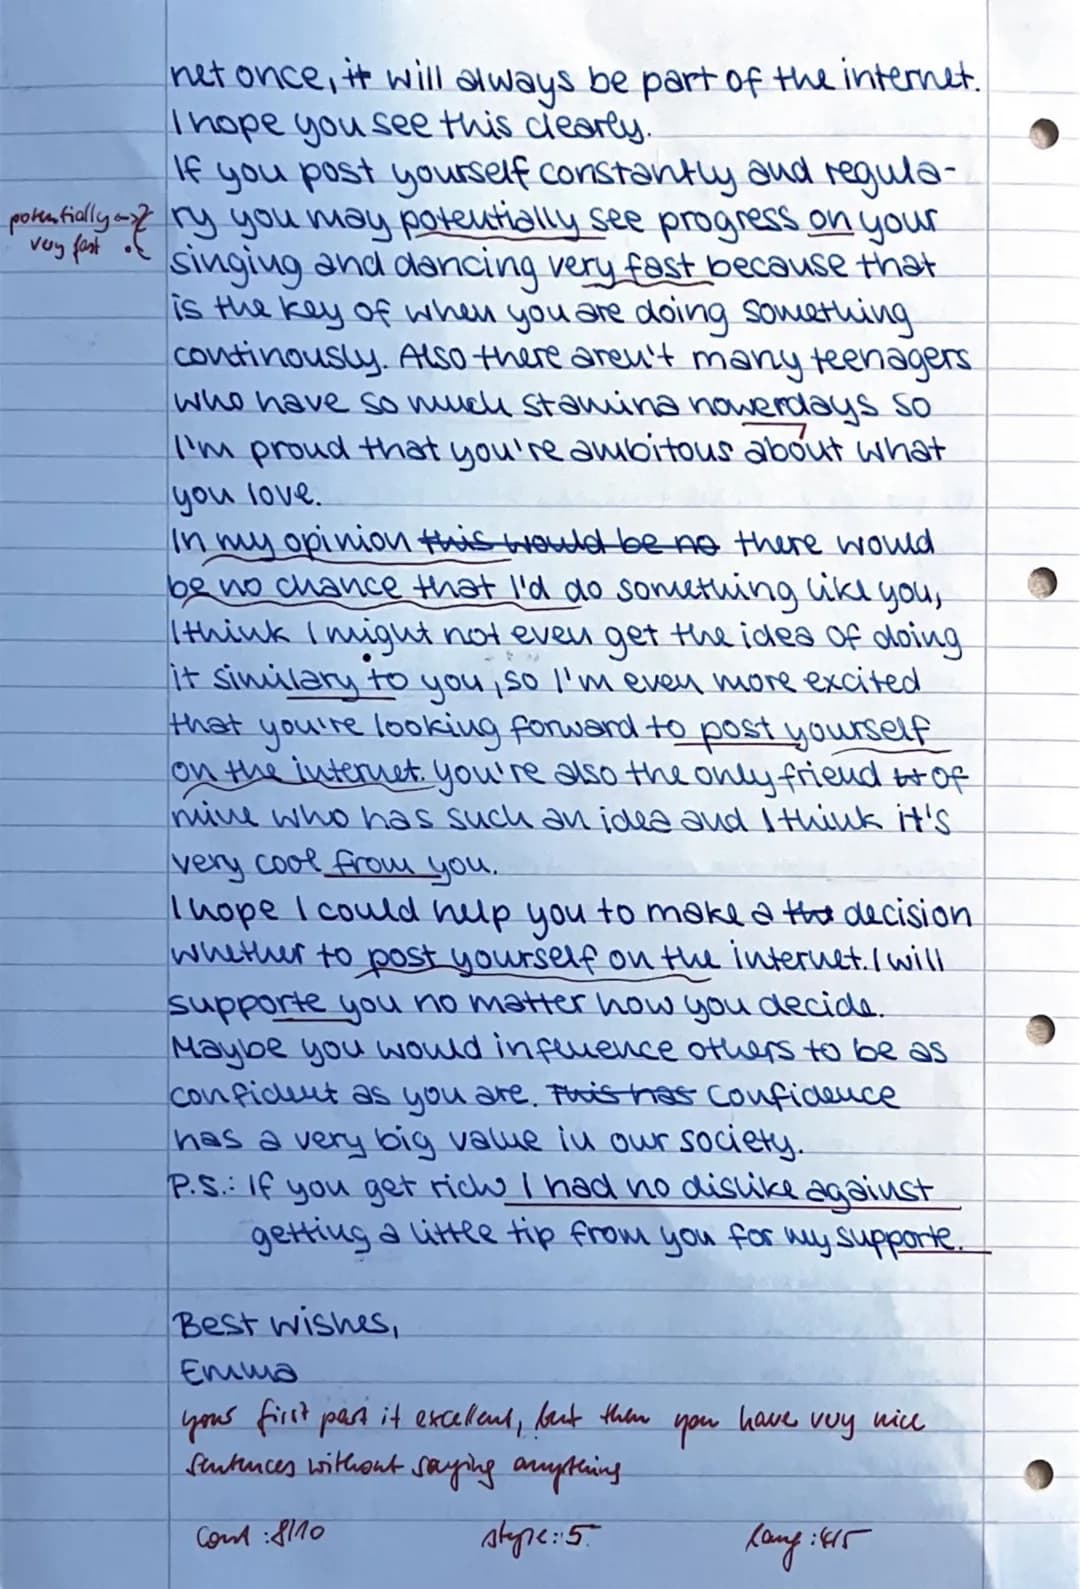 net once, it will always be part of the internet.
I hope you see this clearly.
If you post yourself constantly and regula-
potentially <-> ?
very fast
ry you may potentially see progress on your
singing and dancing very fast because that
is the key of when you are doing something
continously. Also there aren't many teenagers
who have so much stamina nowerdays so
I'm proud that you're ambitous about what
you love.
In my opinion this would be no there would
be no chance that I'd do something like you,
I think I might not even get the idea of doing
it similary to you, so I'm even more excited
that you're looking forward to post yourself
on the internet. You're also the only friend of
mine who has such an idea and I think it's
very cool from you.
I hope I could help you to make a the decision
whether to post yourself on the internet. I will
supporte you no matter how you decide.
Maybe you would influence others to be as
confident as you are. This has Confidence
has a very big value in our society.
P.S.: If you get rich I had no dislike against
getting a little tip from you for my supporte.
Best wishes,
Emma
your first part it excellent, but then you have very nice
sentences without saying anything
Cont : 8/10 style: 5 Lang : 4/5